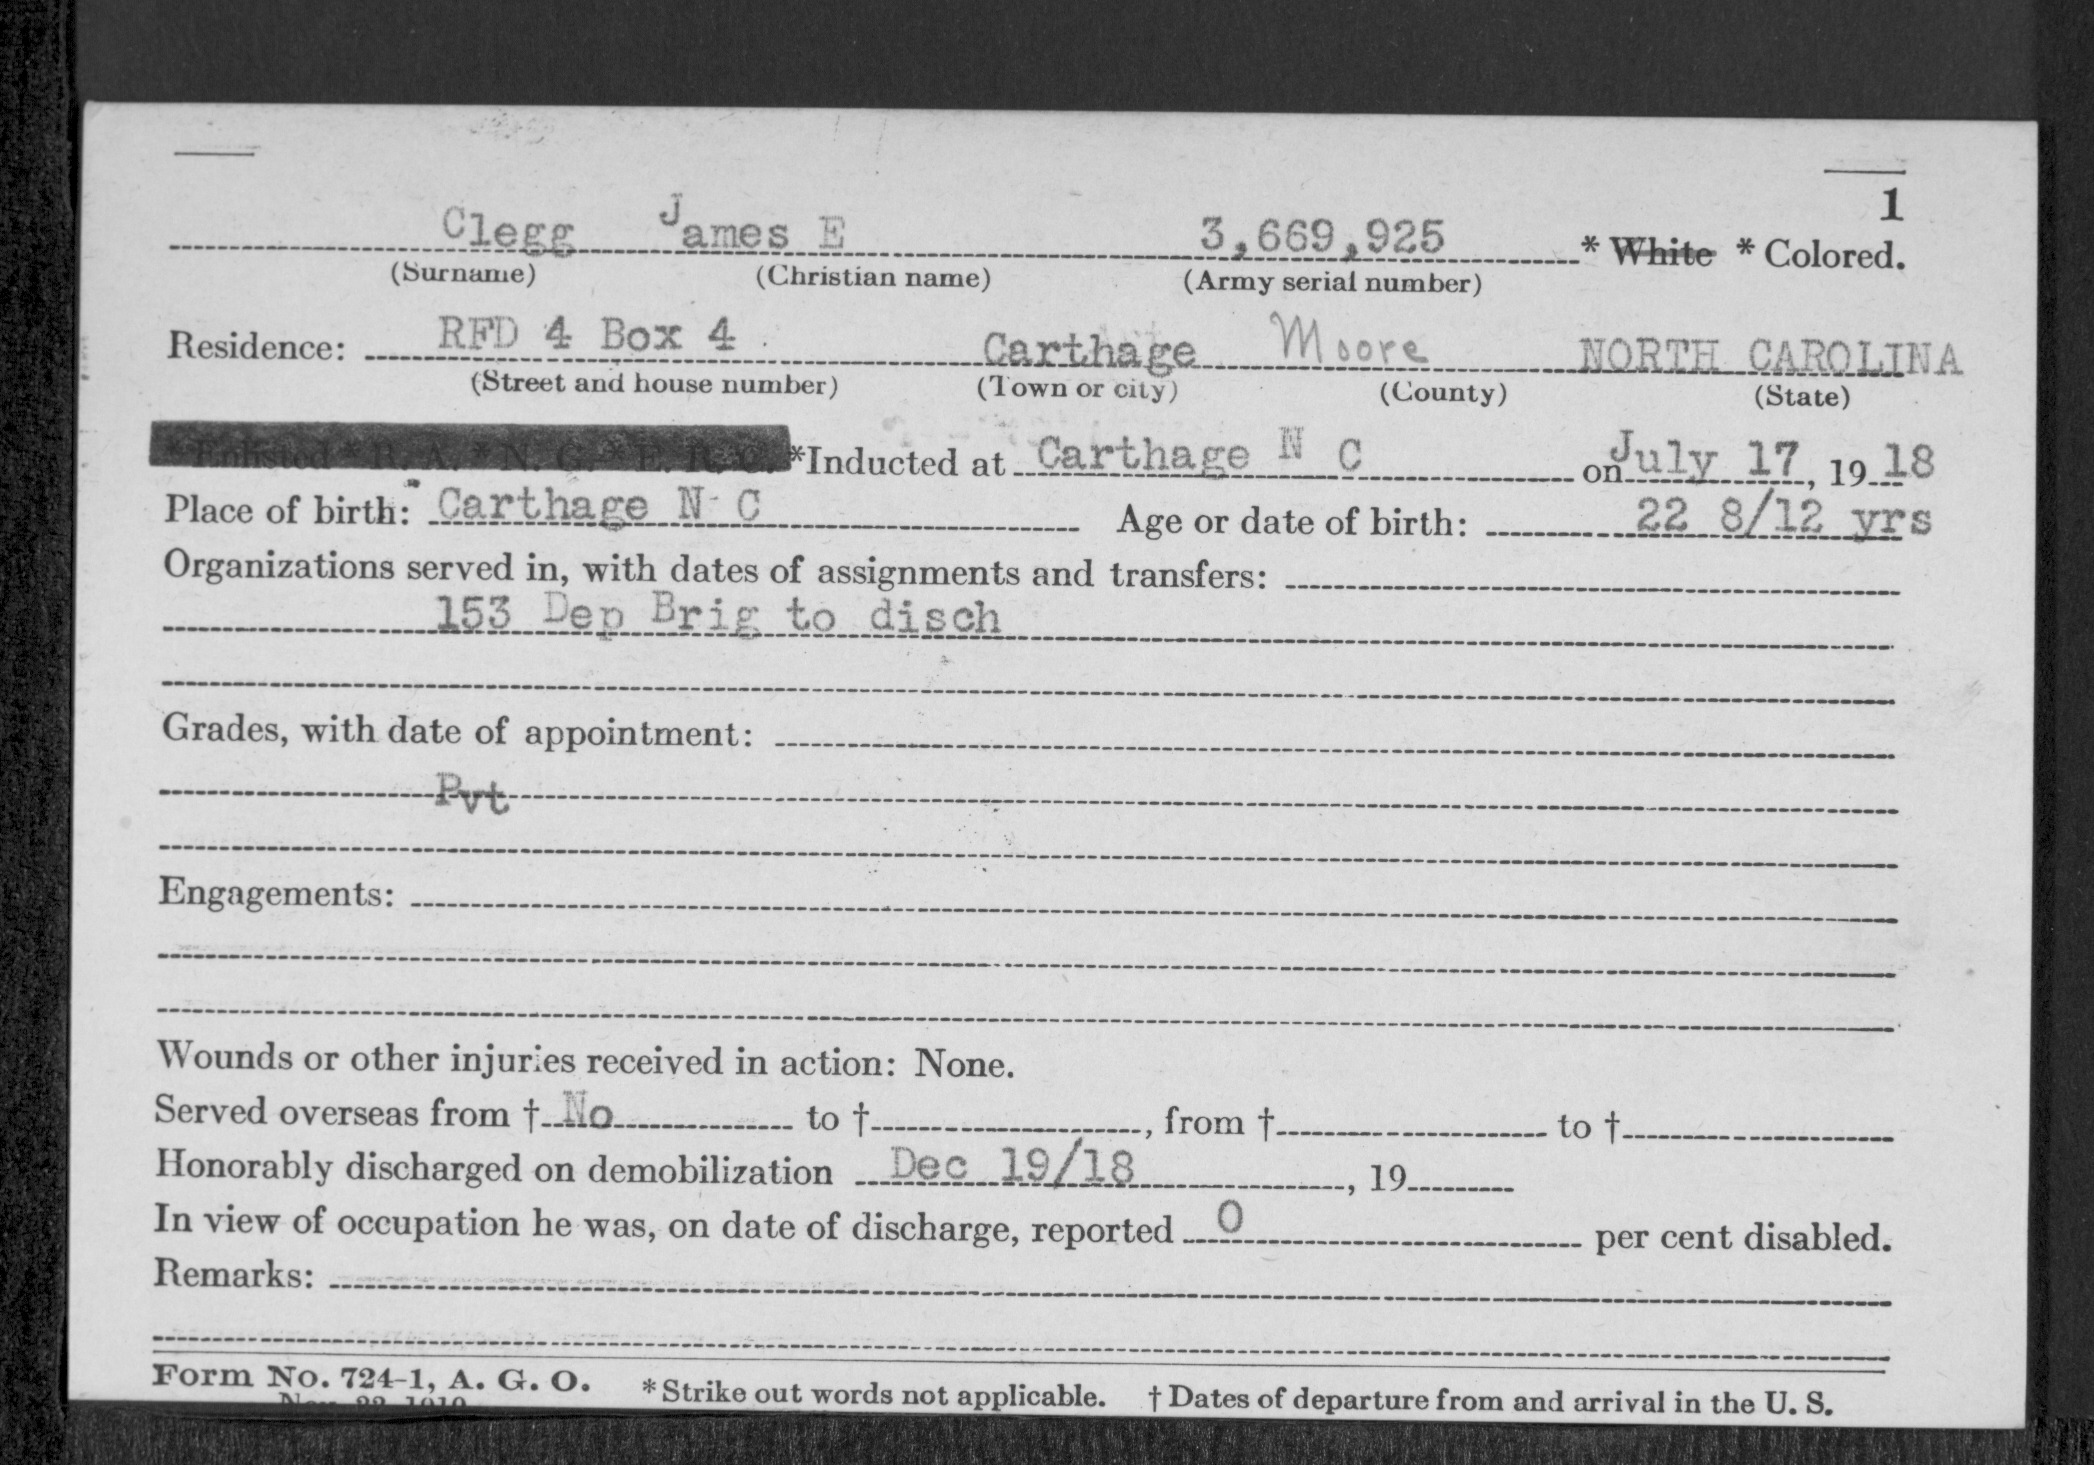 1
Clegg James E 3,669,925 * White * Colored.
(Surname) (Christian name) (Army serial number)
Residence: RFD 4 Box 4 Carthage Moore NORTH CAROLINA
(Street and house number) (Town or city) (County) (State)
* Enlisted * R. A. * N. G. * E. R. C. *Inducted at Carthage N C on July 17, 19 18
Place of birth: Carthage N C Age or date of birth: 22 8/12 yrs
Organizations served in, with dates of assignments and transfers:
153 Dep Brig to disch
Grades, with date of appointment:
Pvt
Engagements:
Wounds or other injuries received in action: None.
Served overseas from † No to †, from † to †
Honorably discharged on demobilization Dec 19/18, 19
In view of occupation he was, on date of discharge, reported 0 per cent disabled.
Remarks:
Form No. 724-1, A. G. O. * Strike out words not applicable. † Dates of departure from and arrival in the U. S.